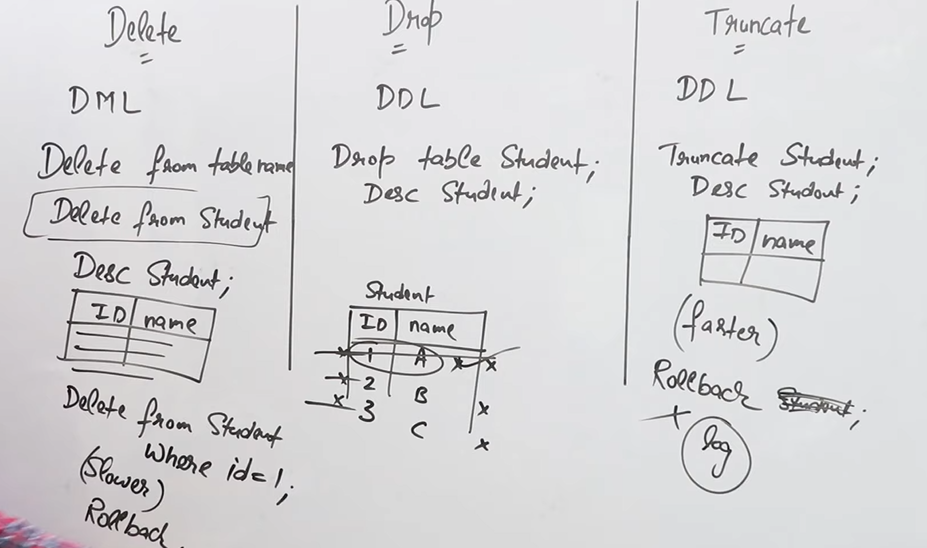 Delete
DML
Delete from tablename
Delete from Student
Desc Student;
ID name
Delete from Student
Where id=1;
(Slower)
Rollback
Drop
DDL
Drop table Student;
Desc Student;
Student
ID name
1 A
2 B
3 C
Truncate
DDL
Truncate Student;
Desc Student;
ID name
(faster)
Rollback Student;
log